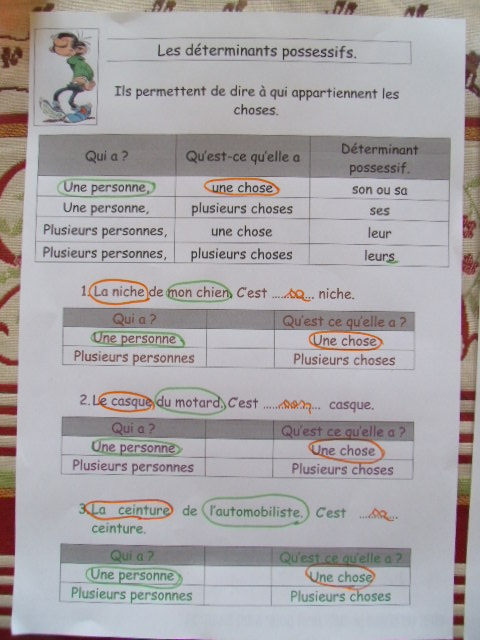 Les déterminants possessifs.
Ils permettent de dire à qui appartiennent les
choses.
Qui a ? Qu'est-ce qu'elle a Déterminant possessif.
Une personne, une chose son ou sa
Une personne, plusieurs choses ses
Plusieurs personnes, une chose leur
Plusieurs personnes, plusieurs choses leurs
1. La niche de mon chien. C'est ......sa... niche.
Qui a ? Qu'est ce qu'elle a ?
Une personne Une chose
Plusieurs personnes Plusieurs choses
2. Le casque du motard. C'est ......son...... casque.
Qui a ? Qu'est ce qu'elle a ?
Une personne Une chose
Plusieurs personnes Plusieurs choses
3. La ceinture de l'automobiliste. C'est ....sa....
ceinture.
Qui a ? Qu'est ce qu'elle a ?
Une personne Une chose
Plusieurs personnes Plusieurs choses